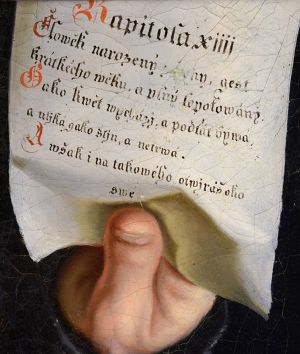 Kapitola xiiii
Cžlowěk narozený z ženy, gest
krátkého wěku, a plný lopotowánj.
Gako kwět wycházj, a podťat býwá
a vtjká gako stjn, a netrwá.
A wšak i na takowého otwjráš oko
swé